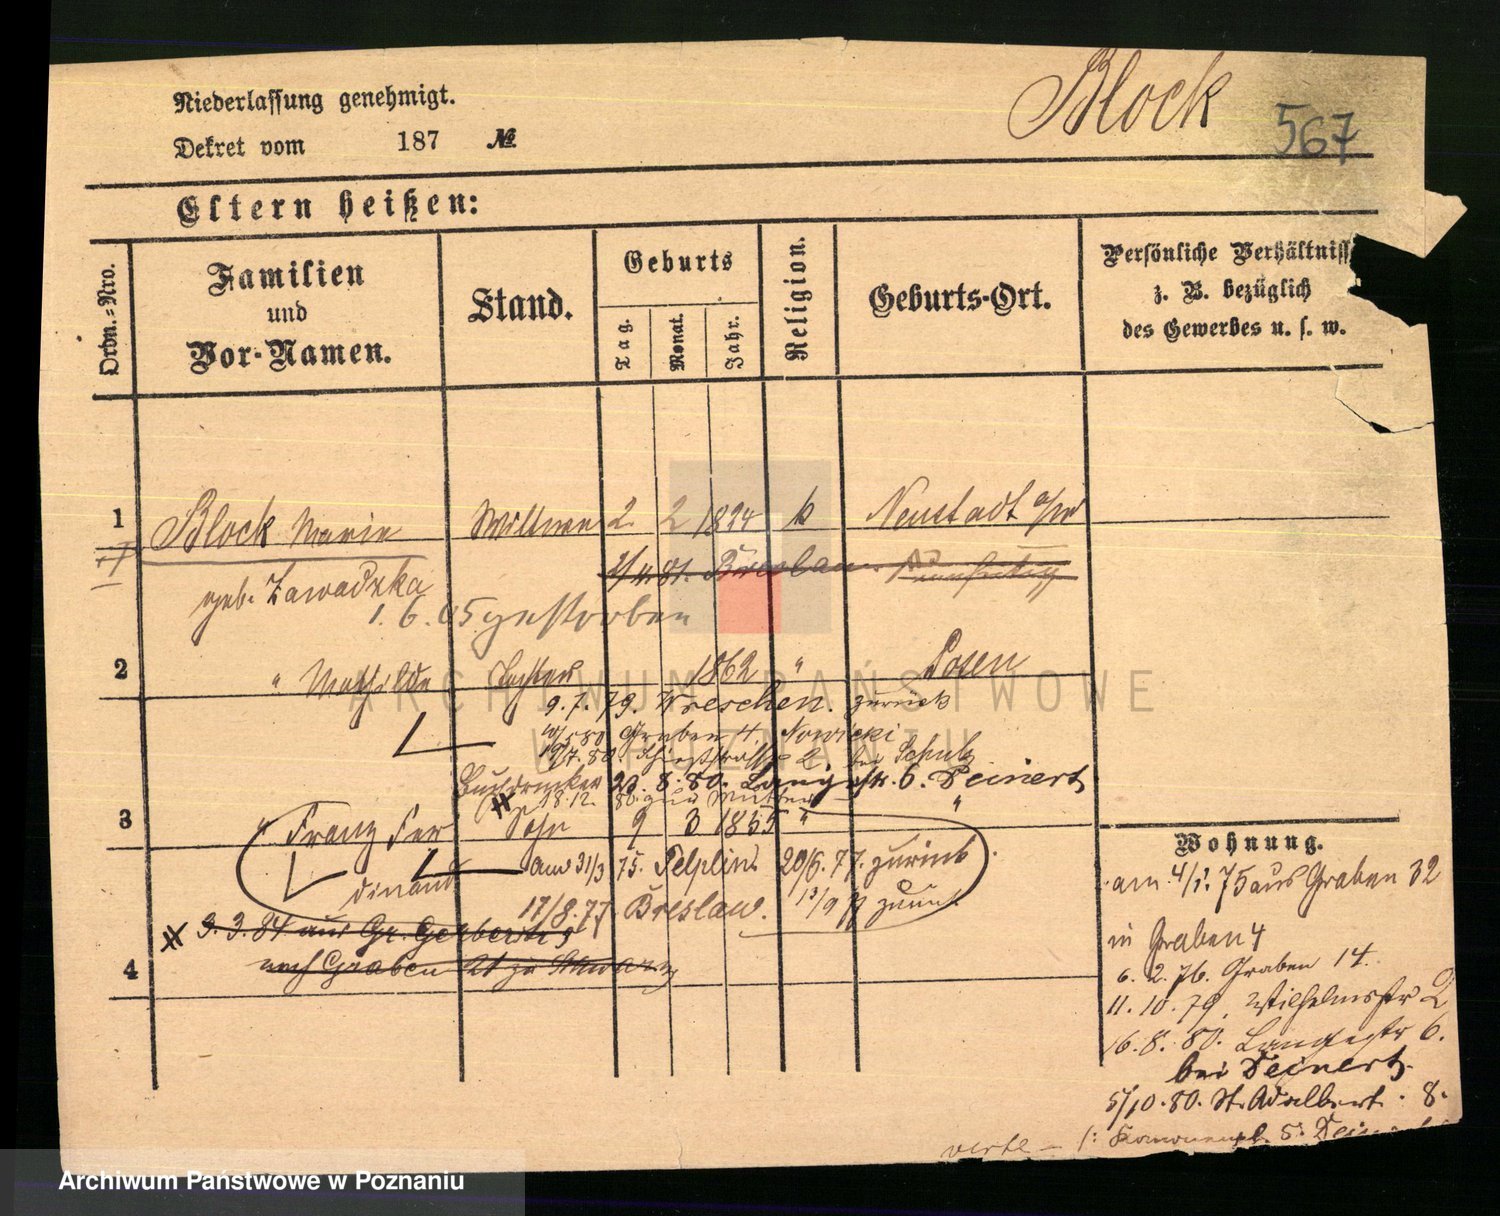 Block
567
Niederlassung genehmigt.
Dekret vom 187 №
Eltern heißen:
Ordn.-Nro.
Familien
und
Vor-Namen.
Stand.
Geburts
Tag.
Monat.
Jahr.
Religion.
Geburts-Ort.
Persönliche Verhältniss
z. B. bezüglich
des Gewerbes u. s. w.
1 Block Marie Wittwe 2. 2 1824 k Neustadt a/W
Breslau.
geb. Zawadzka
1. 6. 05 gestorben
2 " Mathilde Tochter 1862 " Posen
9. 7. 79. Wreschen. zurück
Graben 4. Nowicki
19/7. 80. Schießstraße 2. bei Schulz
Buchdrucker 20. 8. 80. Langestr. 6. Deinert
18. 12. 80. zur Mutter
3 " Franz Fer Sohn 9 3 1855 " "
dinand
am 31/3 75. Pelplin. 20/6. 77. zurück
17/8. 77. Breslau. 13/9 77 zurück
9. 3. 84 aus Gr. Gerberstr 9
nach Graben 21 zu Schwarz
4
Wohnung.
am 4/1. 75 aus Graben 32
in Graben 4
6. 2. 76. Graben 14.
11. 10. 79. Wilhelmsstr 2
16. 8. 80. Langestr 6.
bei Deinert.
5/10. 80. St. Adalbert. 8.
verte –
ARCHIWUM PAŃSTWOWE
W POZNANIU
Archiwum Państwowe w Poznaniu